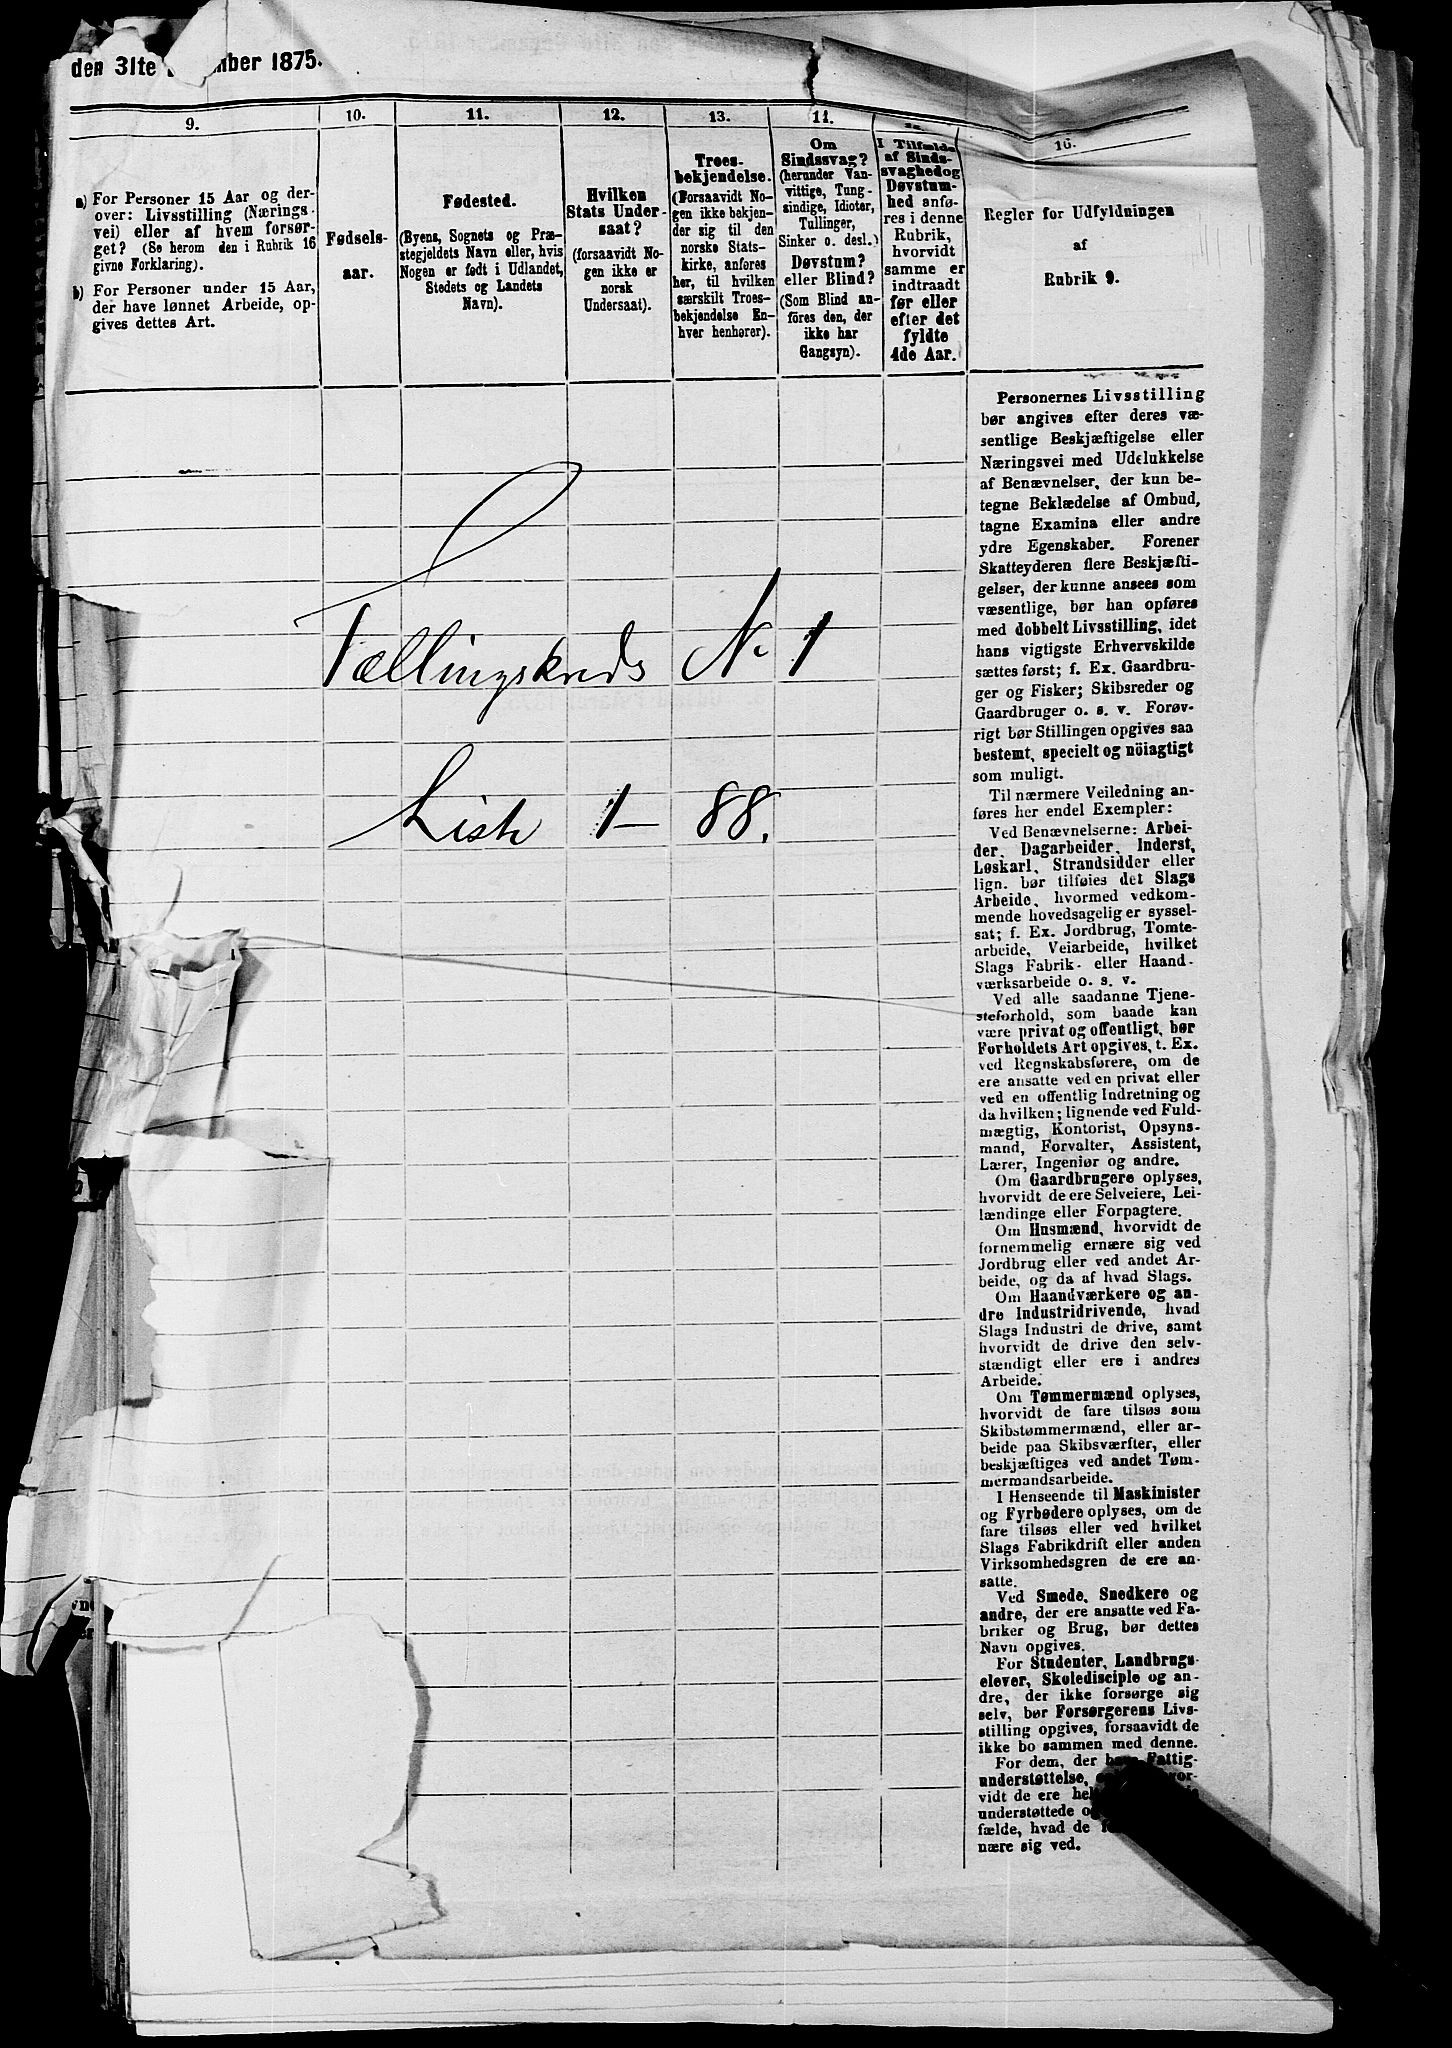 den 31te mber 1875.
9.
a) For Personer 15 Aar og der-
over: Livsstilling (Nærings-
vei) eller af hvem forsør-
get? (Se herom den i Rubrik 16
givne Forklaring).
b) For Personer under 15 Aar,
der have lønnet Arbeide, op-
gives dettes Art.
10.
Fødsels-
aar.
11.
Fødested.
(Byens, Sognets og Præ-
stegjeldets Navn eller, hvis
Nogen er født i Udlandet,
Stedets og Landets
Navn).
12.
Hvilken
Stats Under-
saat?
(forsaavidt No-
gen ikke er
norsk
Undersaat).
13.
Troes-
bekjendelse.
(Forsaavidt No-
gen ikke bekjen-
der sig til den
norske Stats-
kirke, anføres
her, til hvilken
særskilt Troes-
bekjendelse En-
hver henhører).
14.
Om
Sindssvag?
(herunder Van-
vittige, Tung-
sindige, Idioter,
Tullinger,
Sinker o. desl.)
Døvstum?
eller Blind?
(Som Blind an-
føres den, der
ikke har
Gangsyn).
I Tilfælde
af Sinds-
svaghed og
Døvstum-
hed anfø-
res i denne
Rubrik,
hvorvidt
samme er
indtraadt
før eller
efter det
fyldte
4de Aar.
16.
Regler for Udfyldningen
af
Rubrik 9.
Personernes Livsstilling
bør angives efter deres væ-
sentlige Beskjæftigelse eller
Næringsvei med Udelukkelse
af Benævnelser, der kun be-
tegne Beklædelse af Ombud,
tagne Examina eller andre
ydre Egenskaber. Forener
Skatteyderen flere Beskjæfti-
gelser, der kunne ansees som
væsentlige, bør han opføres
med dobbelt Livsstilling, idet
hans vigtigste Erhvervskilde
sættes først; f. Ex. Gaardbru-
ger og Fisker; Skibsreder og
Gaardbruger o. s. v. Forøv-
rigt bør Stillingen opgives saa
bestemt, specielt og nöiagtigt
som muligt.
Til nærmere Veiledning an-
føres her endel Exempler:
Ved Benævnelserne: Arbei-
der, Dagarbeider, Inderst,
Løskarl, Strandsidder eller
lign. bør tilføies det Slags
Arbeide, hvormed vedkom-
mende hovedsagelig er syssel-
sat; f. Ex. Jordbrug, Tomte-
arbeide, Veiarbeide, hvilket
Slags Fabrik- eller Haand-
værksarbeide o. s. v.
Ved alle saadanne Tjene-
steforhold, som baade kan
være privat og offentligt, bør
Forholdets Art opgives, t. Ex.
ved Regnskabsførere, om de
ere ansatte ved en privat eller
ved en offentlig Indretning og
da hvilken; lignende ved Fuld-
mægtig, Kontorist, Opsyns-
mand, Forvalter, Assistent,
Lærer, Ingeniør og andre.
Om Gaardbrugere oplyses,
hvorvidt de ere Selveiere, Lei-
lændinge eller Forpagtere.
Om Husmænd, hvorvidt de
fornemmelig ernære sig ved
Jordbrug eller ved andet Ar-
beide, og da af hvad Slags.
Om Haandværkere og an-
dre Industridrivende, hvad
Slags Industri de drive, samt
hvorvidt de drive den selv-
stændigt eller ere i andres
Arbeide.
Om Tømmermænd oplyses,
hvorvidt de fare tilsøs som
Skibstømmermænd, eller ar-
beide paa Skibsværfter, eller
beskjæftiges ved andet Tøm-
mermandsarbeide.
I Henseende til Maskinister
og Fyrbødere oplyses, om de
fare tilsøs eller ved hvilket
Slags Fabrikdrift eller anden
Virksomhedsgren de ere an-
satte.
Ved Smede, Snedkere og
andre, der ere ansatte ved Fa-
briker og Brug, bør dettes
Navn opgives.
For Studenter, Landbrugs-
elever, Skoledisciple og an-
dre, der ikke forsørge sig
selv, bør Forsørgerens Livs-
stilling opgives, forsaavidt de
ikke bo sammen med denne.
For dem, der have Fattig-
understøttelse,
vidt de ere
understøttede
fælde, hvad de
nære sig ved.
Tællingskreds No 1
Liste 1 - 88.